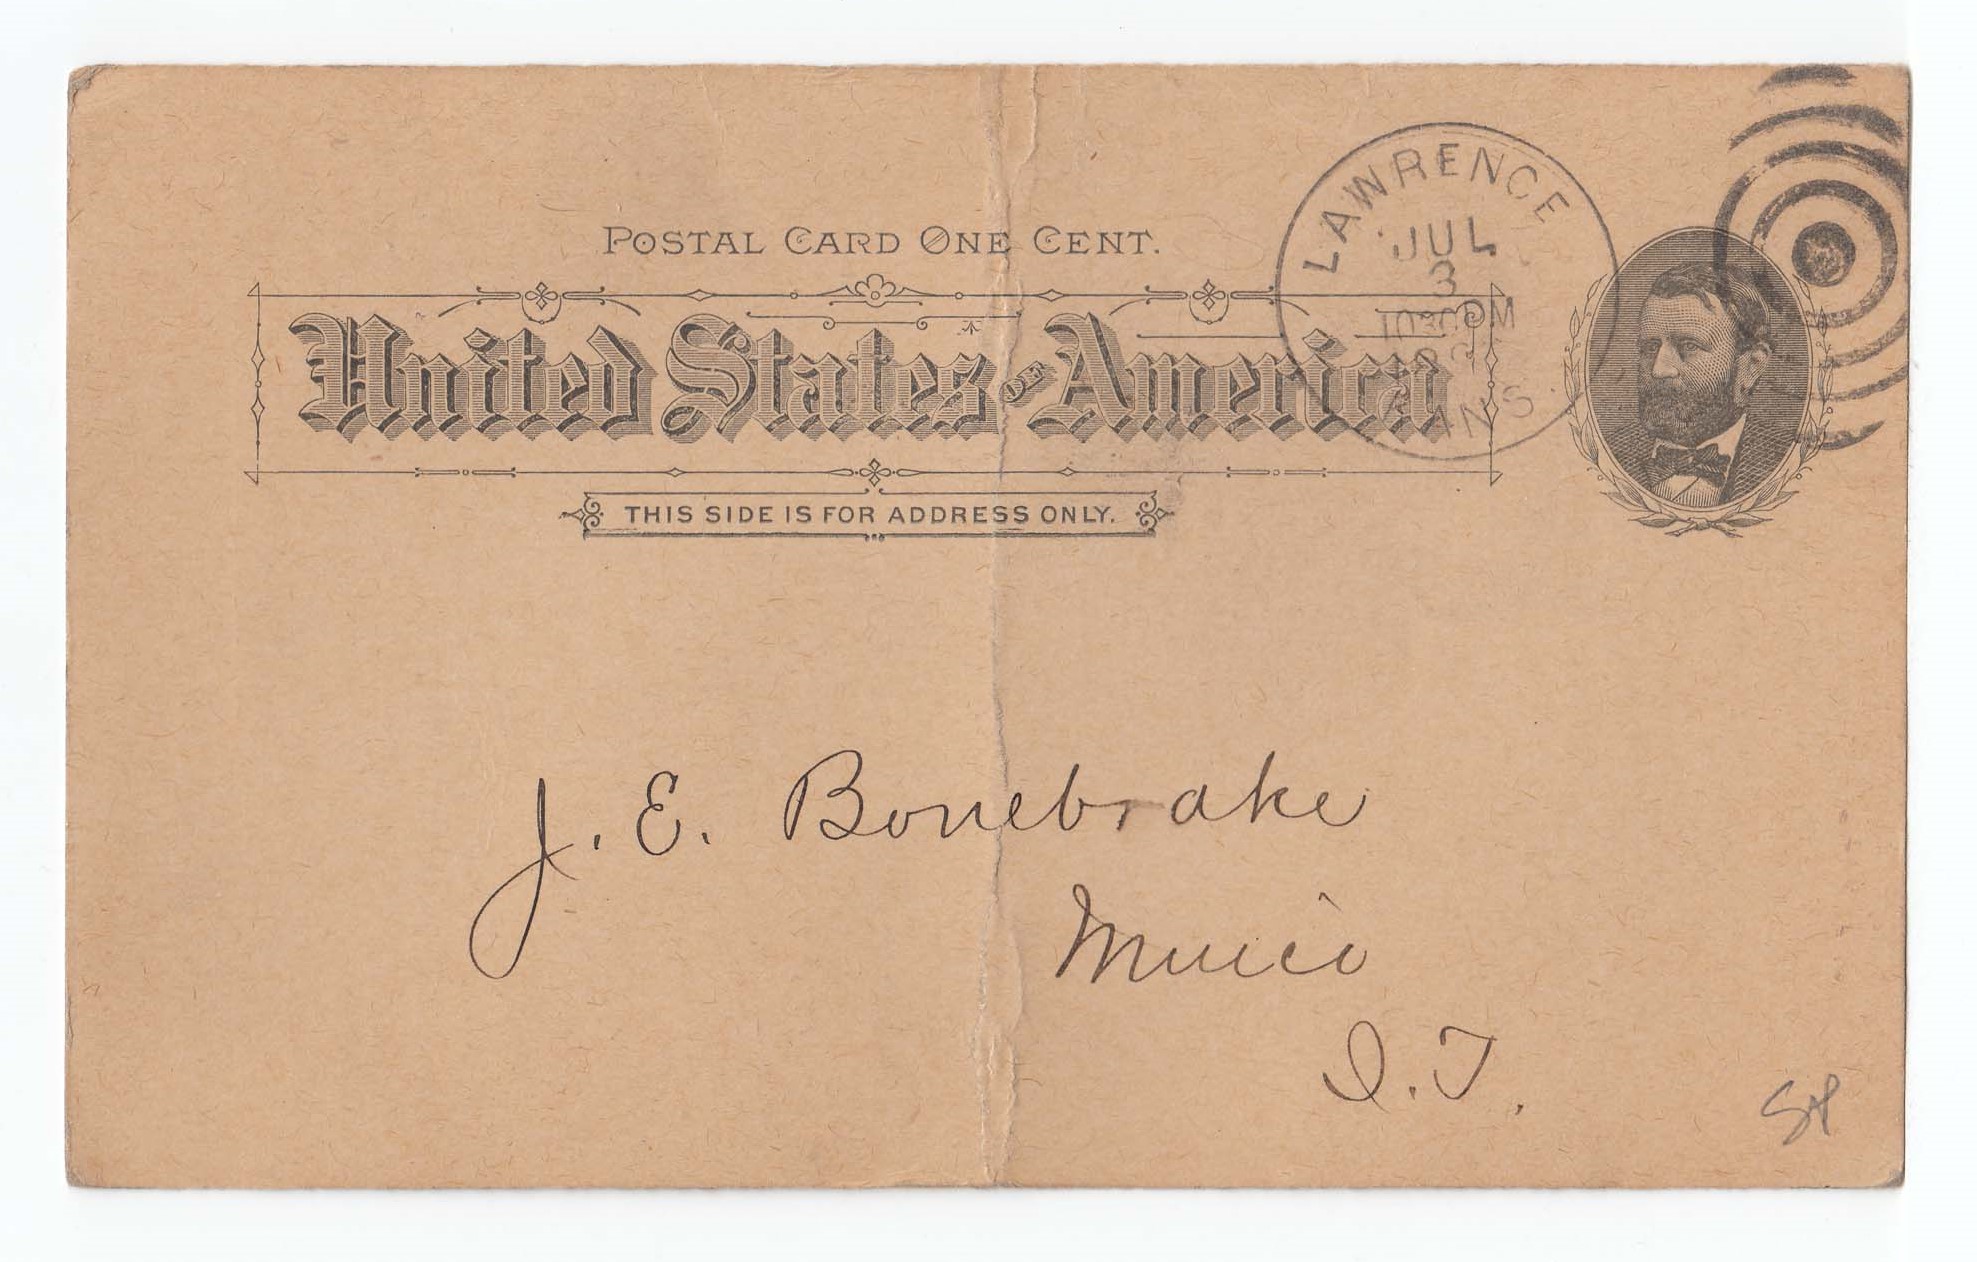 POSTAL CARD ONE CENT.
United States OF America
THIS SIDE IS FOR ADDRESS ONLY.
LAWRENCE
JUL
3
1030PM
KANS.
J. E. Bonebrake
I.T.